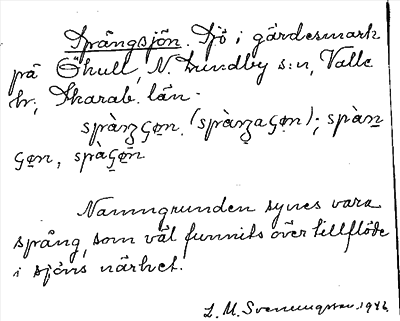 Spångsjön. Sjö i gärdesmark
på Öhull, N. Lundby s:n, Valle
hr, Skarab. län.
spàŋʒɷn. (spàŋʒaɷn); spàn
ɷn, spàɷn
Namngrunden synes vara
spång, som väl funnits över tillflöde
i sjöns närhet.
L. M. Svenungsson. 1946.